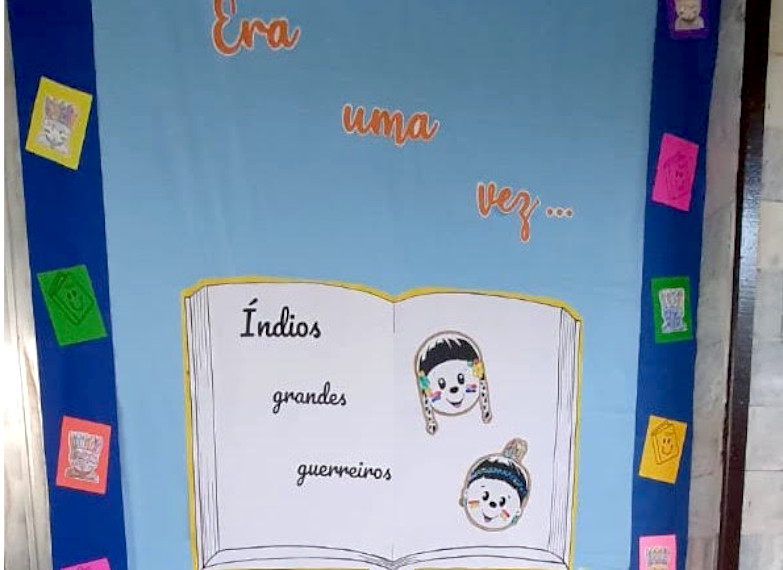 Era
uma
vez...
Índios
grandes
guerreiros